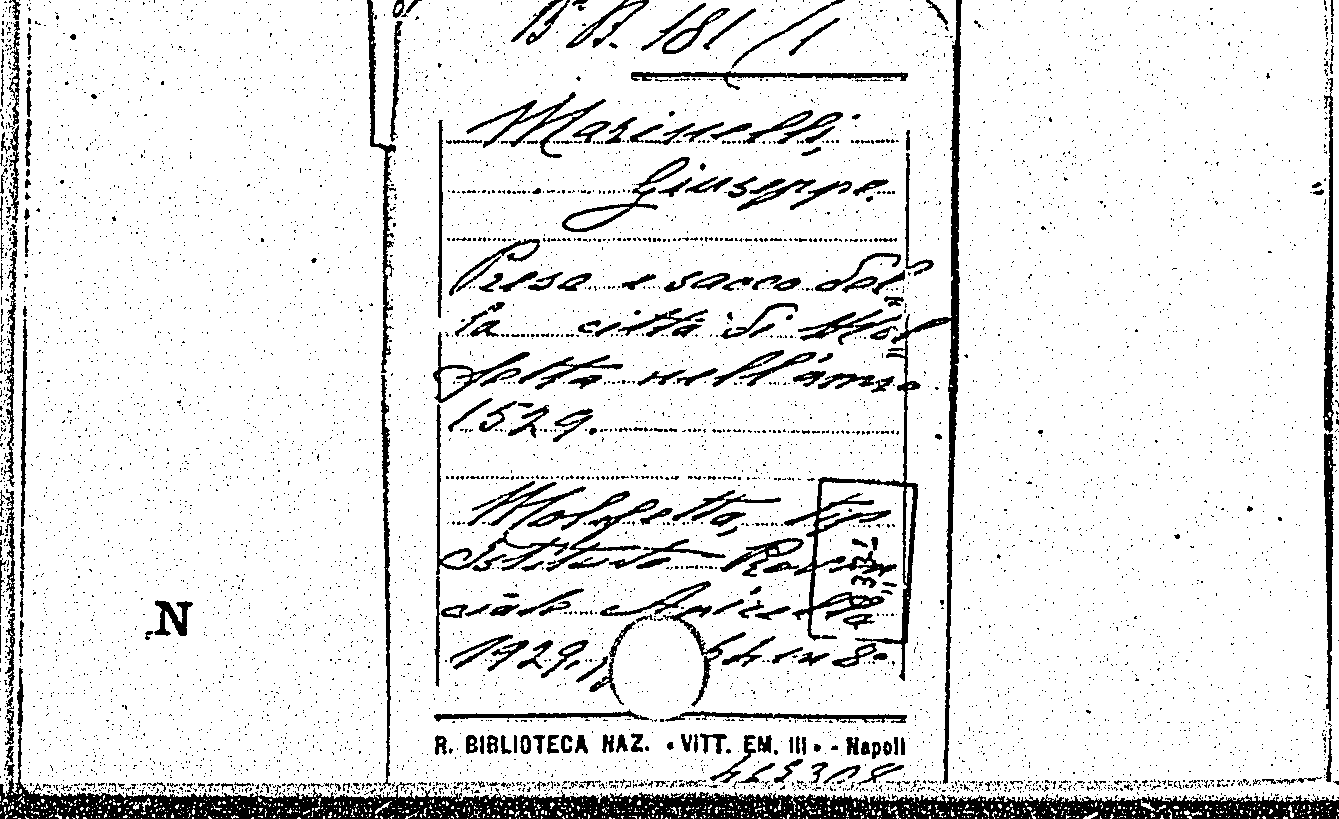 B. B. 181 / 1
Marinelli,
Giuseppe.
Presa e sacco del
la città di Mol
fetta nell'anno
1529.
Molfetta, tip
Istituto Provin
ciale Apicella
1929, 54 in 8°
R. BIBLIOTECA NAZ. «VITT. EM. III» - Napoli
N